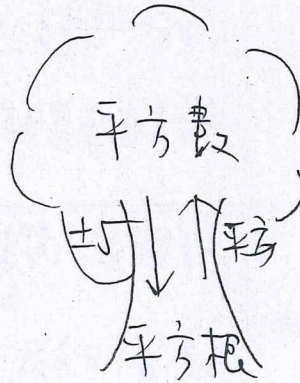 平方數
±√ 平方
平方根